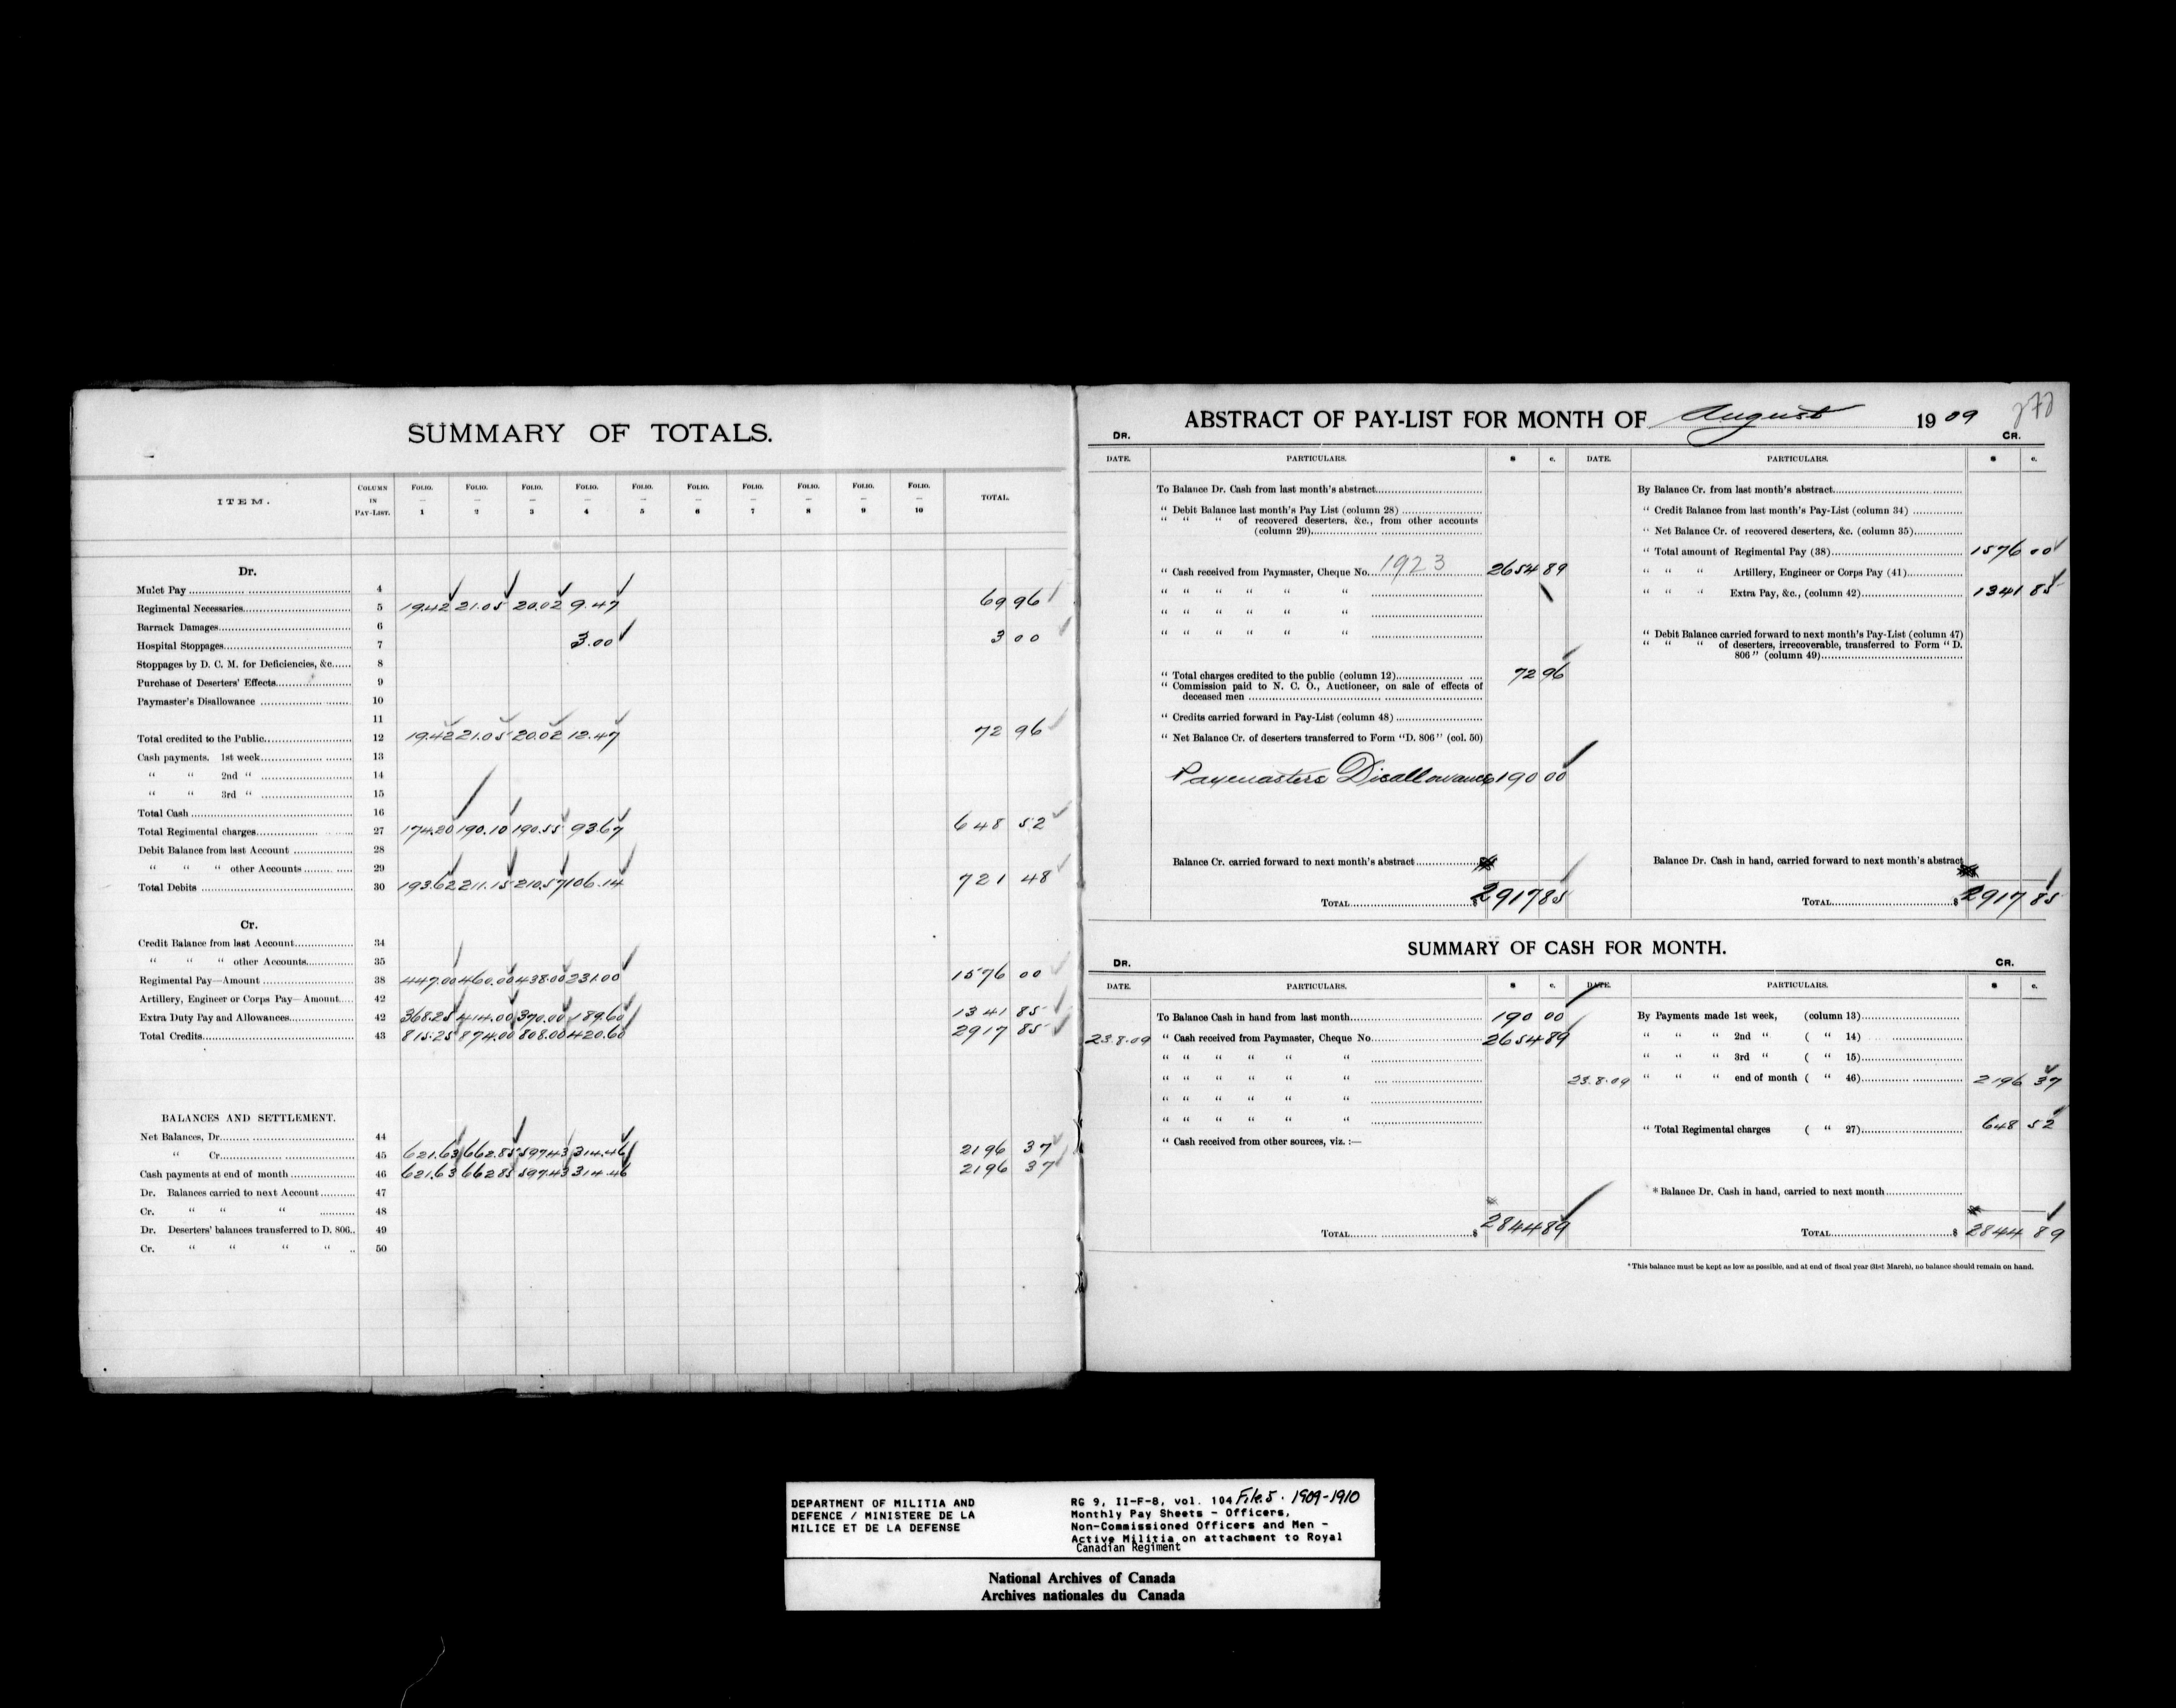 SUMMARY OF TOTALS.
ITEM. COLUMN IN PAY-LIST. FOLIO. — 1 FOLIO. — 2 FOLIO. — 3 FOLIO. — 4 FOLIO. — 5 FOLIO. — 6 FOLIO. — 7 FOLIO. — 8 FOLIO. — 9 FOLIO. — 10 TOTAL.
Dr.
Mulct Pay 4
Regimental Necessaries 5 19.42 21.05 20.02 9.47 69 96
Barrack Damages 6
Hospital Stoppages 7 3.00 3 00
Stoppages by D. C. M. for Deficiencies, &c. 8
Purchase of Deserters' Effects 9
Paymaster's Disallowance 10
11
Total credited to the Public 12 19.42 21.05 20.02 12.47 72 96
Cash payments. 1st week 13
" " 2nd " 14
" " 3rd " 15
Total Cash 16
Total Regimental charges 27 174.20 190.10 190.55 93.67 648 52
Debit Balance from last Account 28
" " " other Accounts 29
Total Debits 30 193.62 211.15 210.57 106.14 721 48
Cr.
Credit Balance from last Account 34
" " " other Accounts 35
Regimental Pay—Amount 38 447.00 460.00 438.00 231.00 1576 00
Artillery, Engineer or Corps Pay—Amount 42
Extra Duty Pay and Allowances 42 368.25 414.00 370.00 189.60 1341 85
Total Credits 43 815.25 874.00 808.00 420.60 2917 85
BALANCES AND SETTLEMENT.
Net Balances, Dr. 44
" Cr. 45 621.63 662.85 597.43 314.46 2196 37
Cash payments at end of month 46 621.63 662.85 597.43 314.46 2196 37
Dr. Balances carried to next Account 47
Cr. " " " 48
Dr. Deserters' balances transferred to D. 806.. 49
Cr. " " " " .. 50
ABSTRACT OF PAY-LIST FOR MONTH OF August 1909
DR. CR.
DATE. PARTICULARS. $ c. DATE. PARTICULARS. $ c.
To Balance Dr. Cash from last month's abstract
" Debit Balance last month's Pay List (column 28)
" " " of recovered deserters, &c., from other accounts
(column 29)
" Cash received from Paymaster, Cheque No. 1923 2654 89
" " " " " "
" " " " " "
" " " " " "
" Total charges credited to the public (column 12) 72 96
" Commission paid to N. C. O., Auctioneer, on sale of effects of
deceased men
" Credits carried forward in Pay-List (column 48)
" Net Balance Cr. of deserters transferred to Form "D. 806" (col. 50)
Paymasters Disallowance 190 00
Balance Cr. carried forward to next month's abstract
TOTAL $ 2917 85
By Balance Cr. from last month's abstract
" Credit Balance from last month's Pay-List (column 34)
" Net Balance Cr. of recovered deserters, &c. (column 35)
" Total amount of Regimental Pay (38) 1576 00
" " " Artillery, Engineer or Corps Pay (41)
" " " Extra Pay, &c., (column 42) 1341 85
" Debit Balance carried forward to next month's Pay-List (column 47)
" " " of deserters, irrecoverable, transferred to Form "D.
806" (column 49)
Balance Dr. Cash in hand, carried forward to next month's abstract
TOTAL $ 2917 85
SUMMARY OF CASH FOR MONTH.
DR. CR.
DATE. PARTICULARS. $ c. DATE. PARTICULARS. $ c.
To Balance Cash in hand from last month 190 00
23.8.09 " Cash received from Paymaster, Cheque No. 2654 89
" " " " " "
" " " " " "
" " " " " "
" " " " " "
" Cash received from other sources, viz. :—
TOTAL $ 2844 89
By Payments made 1st week, (column 13)
" " " 2nd " ( " 14)
" " " 3rd " ( " 15)
23.8.09 " " " end of month ( " 46) 2196 37
" Total Regimental charges ( " 27) 648 52
*Balance Dr. Cash in hand, carried to next month
TOTAL $ 2844 89
*This balance must be kept as low as possible, and at end of fiscal year (31st March), no balance should remain on hand.
DEPARTMENT OF MILITIA AND
DEFENCE / MINISTERE DE LA
MILICE ET DE LA DEFENSE
RG 9, II-F-8, vol. 104 File 5. 1909-1910
Monthly Pay Sheets - Officers,
Non-Commissioned Officers and Men -
Active Militia on attachment to Royal
Canadian Regiment
National Archives of Canada
Archives nationales du Canada